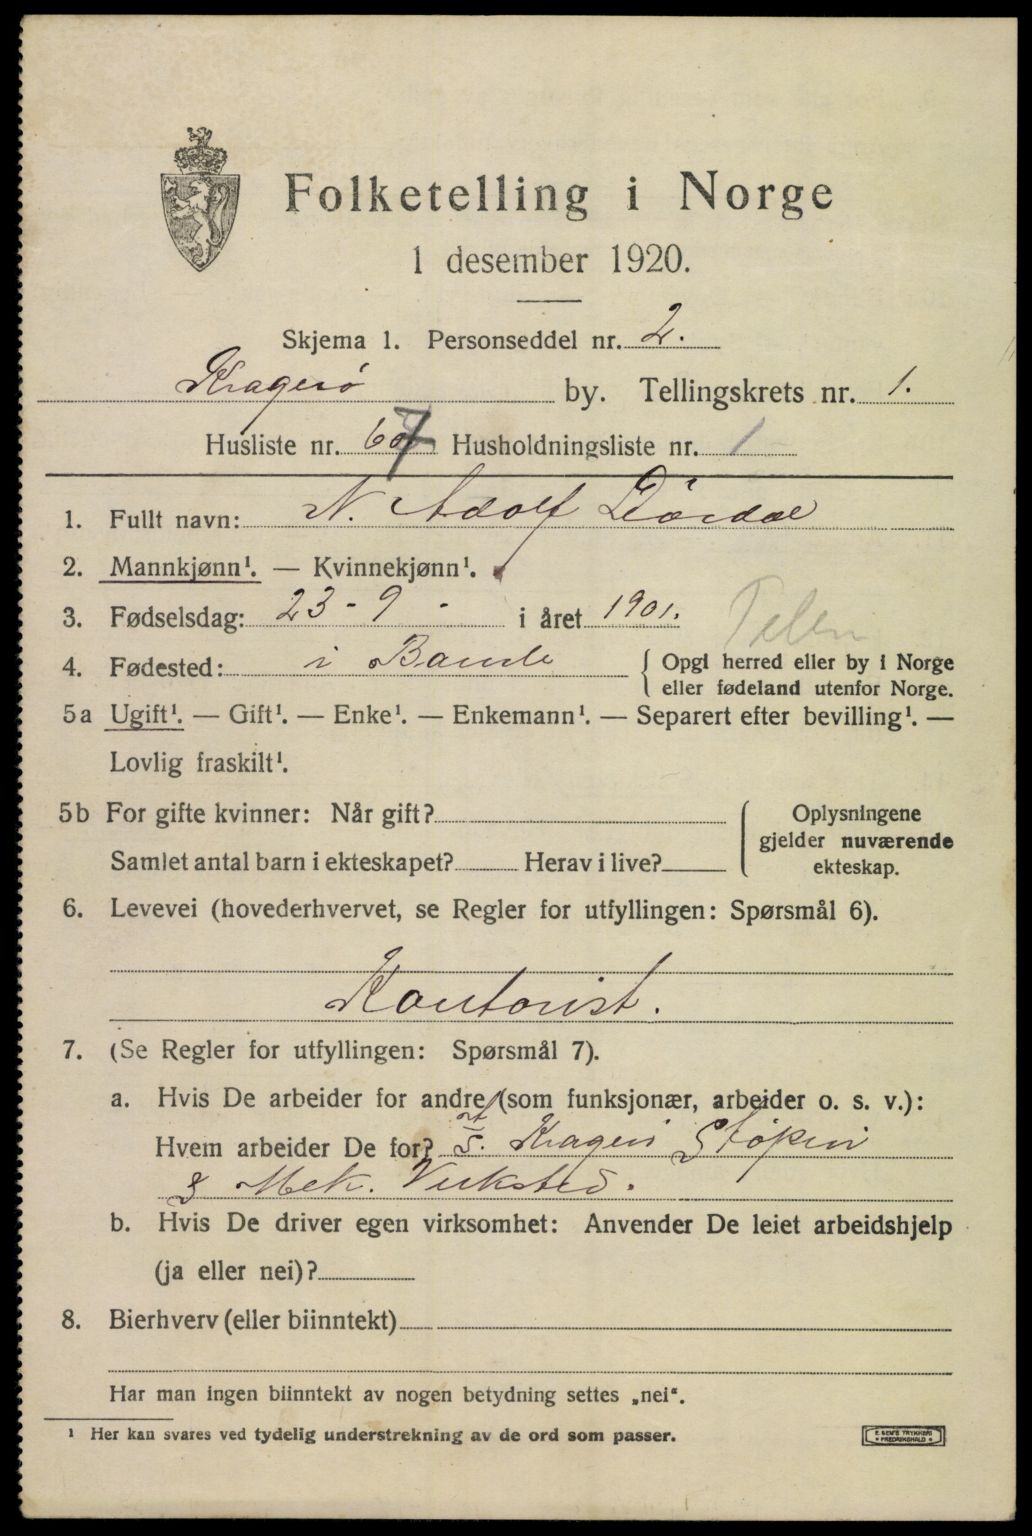 Folketelling i Norge
1 desember 1920.
Skjema 1. Personseddel nr. 2.
Kragerø by. Tellingskrets nr. 1.
Husliste nr. 7 Husholdningsliste nr. 1
1. Fullt navn: N. Adolf Dørdal
2. Mannkjønn¹. — Kvinnekjønn¹.
3. Fødselsdag: 23 - 9 - i året 1901.
Telem
4. Fødested: i Bamle { Opgi herred eller by i Norge
eller fødeland utenfor Norge.
5a Ugift¹. — Gift¹. — Enke¹. — Enkemann¹. — Separert efter bevilling¹. —
Lovlig fraskilt¹.
5b For gifte kvinner: Når gift?
Samlet antal barn i ekteskapet? Herav i live?
Oplysningene
gjelder nuværende
ekteskap.
6. Levevei (hovederhvervet, se Regler for utfyllingen: Spørsmål 6).
Kontorist.
7. (Se Regler for utfyllingen: Spørsmål 7).
a. Hvis De arbeider for andre (som funksjonær, arbeider o. s. v.):
Hvem arbeider De for? Kragerø Støperi
& Mek. Verksted.
b. Hvis De driver egen virksomhet: Anvender De leiet arbeidshjelp
(ja eller nei)?
8. Bierhverv (eller biinntekt)
Har man ingen biinntekt av nogen betydning settes „nei“.
¹ Her kan svares ved tydelig understrekning av de ord som passer.
E. SEM'S TRYKKERI
FREDRIKSHALD